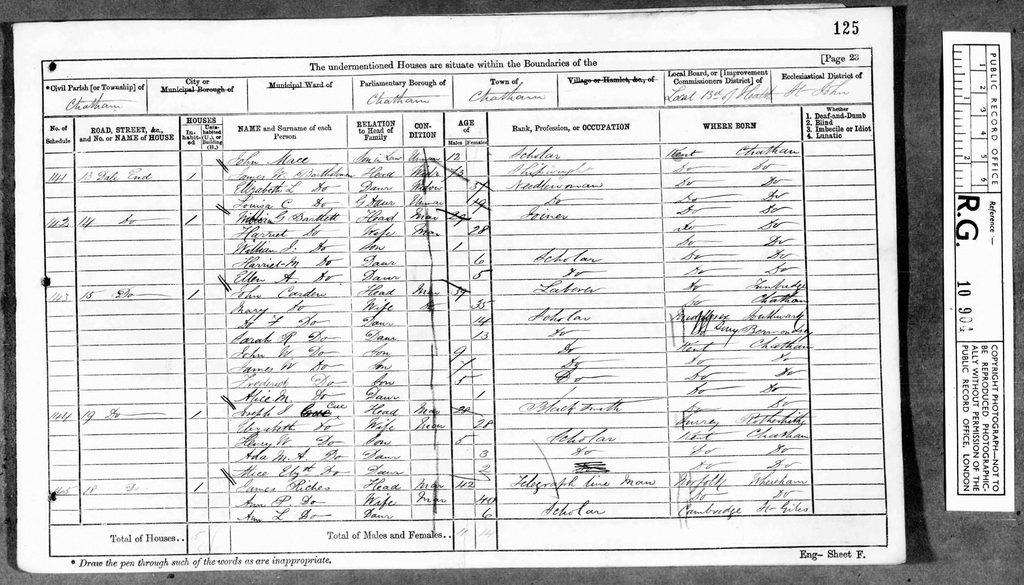 125
[Page 23
The undermentioned Houses are situate within the Boundaries of the
*Civil Parish [or Township] of
Chatham
City or
Municipal Borough of
Municipal Ward of
Parliamentary Borough of
Chatham
Town of
Chatham
Village or Hamlet, &c., of
Local Board, or [Improvement
Commissioners District] of
Local Bd of Health
Ecclesiastical District of
St John
No. of
Schedule
ROAD, STREET, &c.,
and No. or NAME of HOUSE
HOUSES
In-
habit-
ed
Unin-
habited
(U.), or
Building
(B.)
NAME and Surname of each
Person
RELATION
to Head of
Family
CON-
DITION
AGE
of
Males
Females
Rank, Profession, or OCCUPATION
WHERE BORN
Whether
1. Deaf-and-Dumb
2. Blind
3. Imbecile or Idiot
4. Lunatic
John Mace Son in Law Unmar 12 Scholar Kent Chatham
141 13 Dale End 1 James W. Head Widr Do Do
Elizabeth L Do Daur Widow 37 Needlewoman Do Do
Louisa C Do G Daur Unmar 19 Do Do Do
142 14 Do 1 William G Bartlett Head Mar 29 Joiner Do Do
Harriet Do Wife Mar 28 Do Do
William J. Do Son 1 Do Do
Harriet M Do Daur 6 Scholar Do Do
Ellen A. Do Daur 5 Do Do Do
143 15 Do 1 John Carden Head Mar 37 Laborer Do Tunbridge
Mary Do Wife Do 35 Do Chatham
Do Daur 14 Scholar Middlesex Southwark
Sarah R Do Daur 13 Do Surry Bermondsey
John W Do Son 9 Do Kent Chatham
James W Do Son 7 Do Do Do
Frederick Do Son 5 Do Do Do
Alice M. Do Daur 1 Do Do
144 19 Do 1 Joseph J Cue Head Mar 28 Blacksmith Do Do
Elizabeth Do Wife Mar 28 Surrey Rotherhithe
Henry W Do Son 5 Scholar Kent Chatham
Ada M. A Do Daur 3 Do Do Do
Alice Elzth Do Daur 2 Do Do
18 Do 1 James Riches Head Mar 42 Telegraph line Man Norfolk
Ann P. Do Wife Mar 40 Do Do
Ann L Do Daur 6 Scholar Cambridge St Giles
Total of Houses..
Total of Males and Females..
* Draw the pen through such of the words as are inappropriate.
Eng- Sheet F.
PUBLIC RECORD OFFICE
1
2
3
4
5
6
Reference :-
R.G. 10
COPYRIGHT PHOTOGRAPH—NOT TO
BE REPRODUCED PHOTOGRAPHIC-
ALLY WITHOUT PERMISSION OF THE
PUBLIC RECORD OFFICE, LONDON